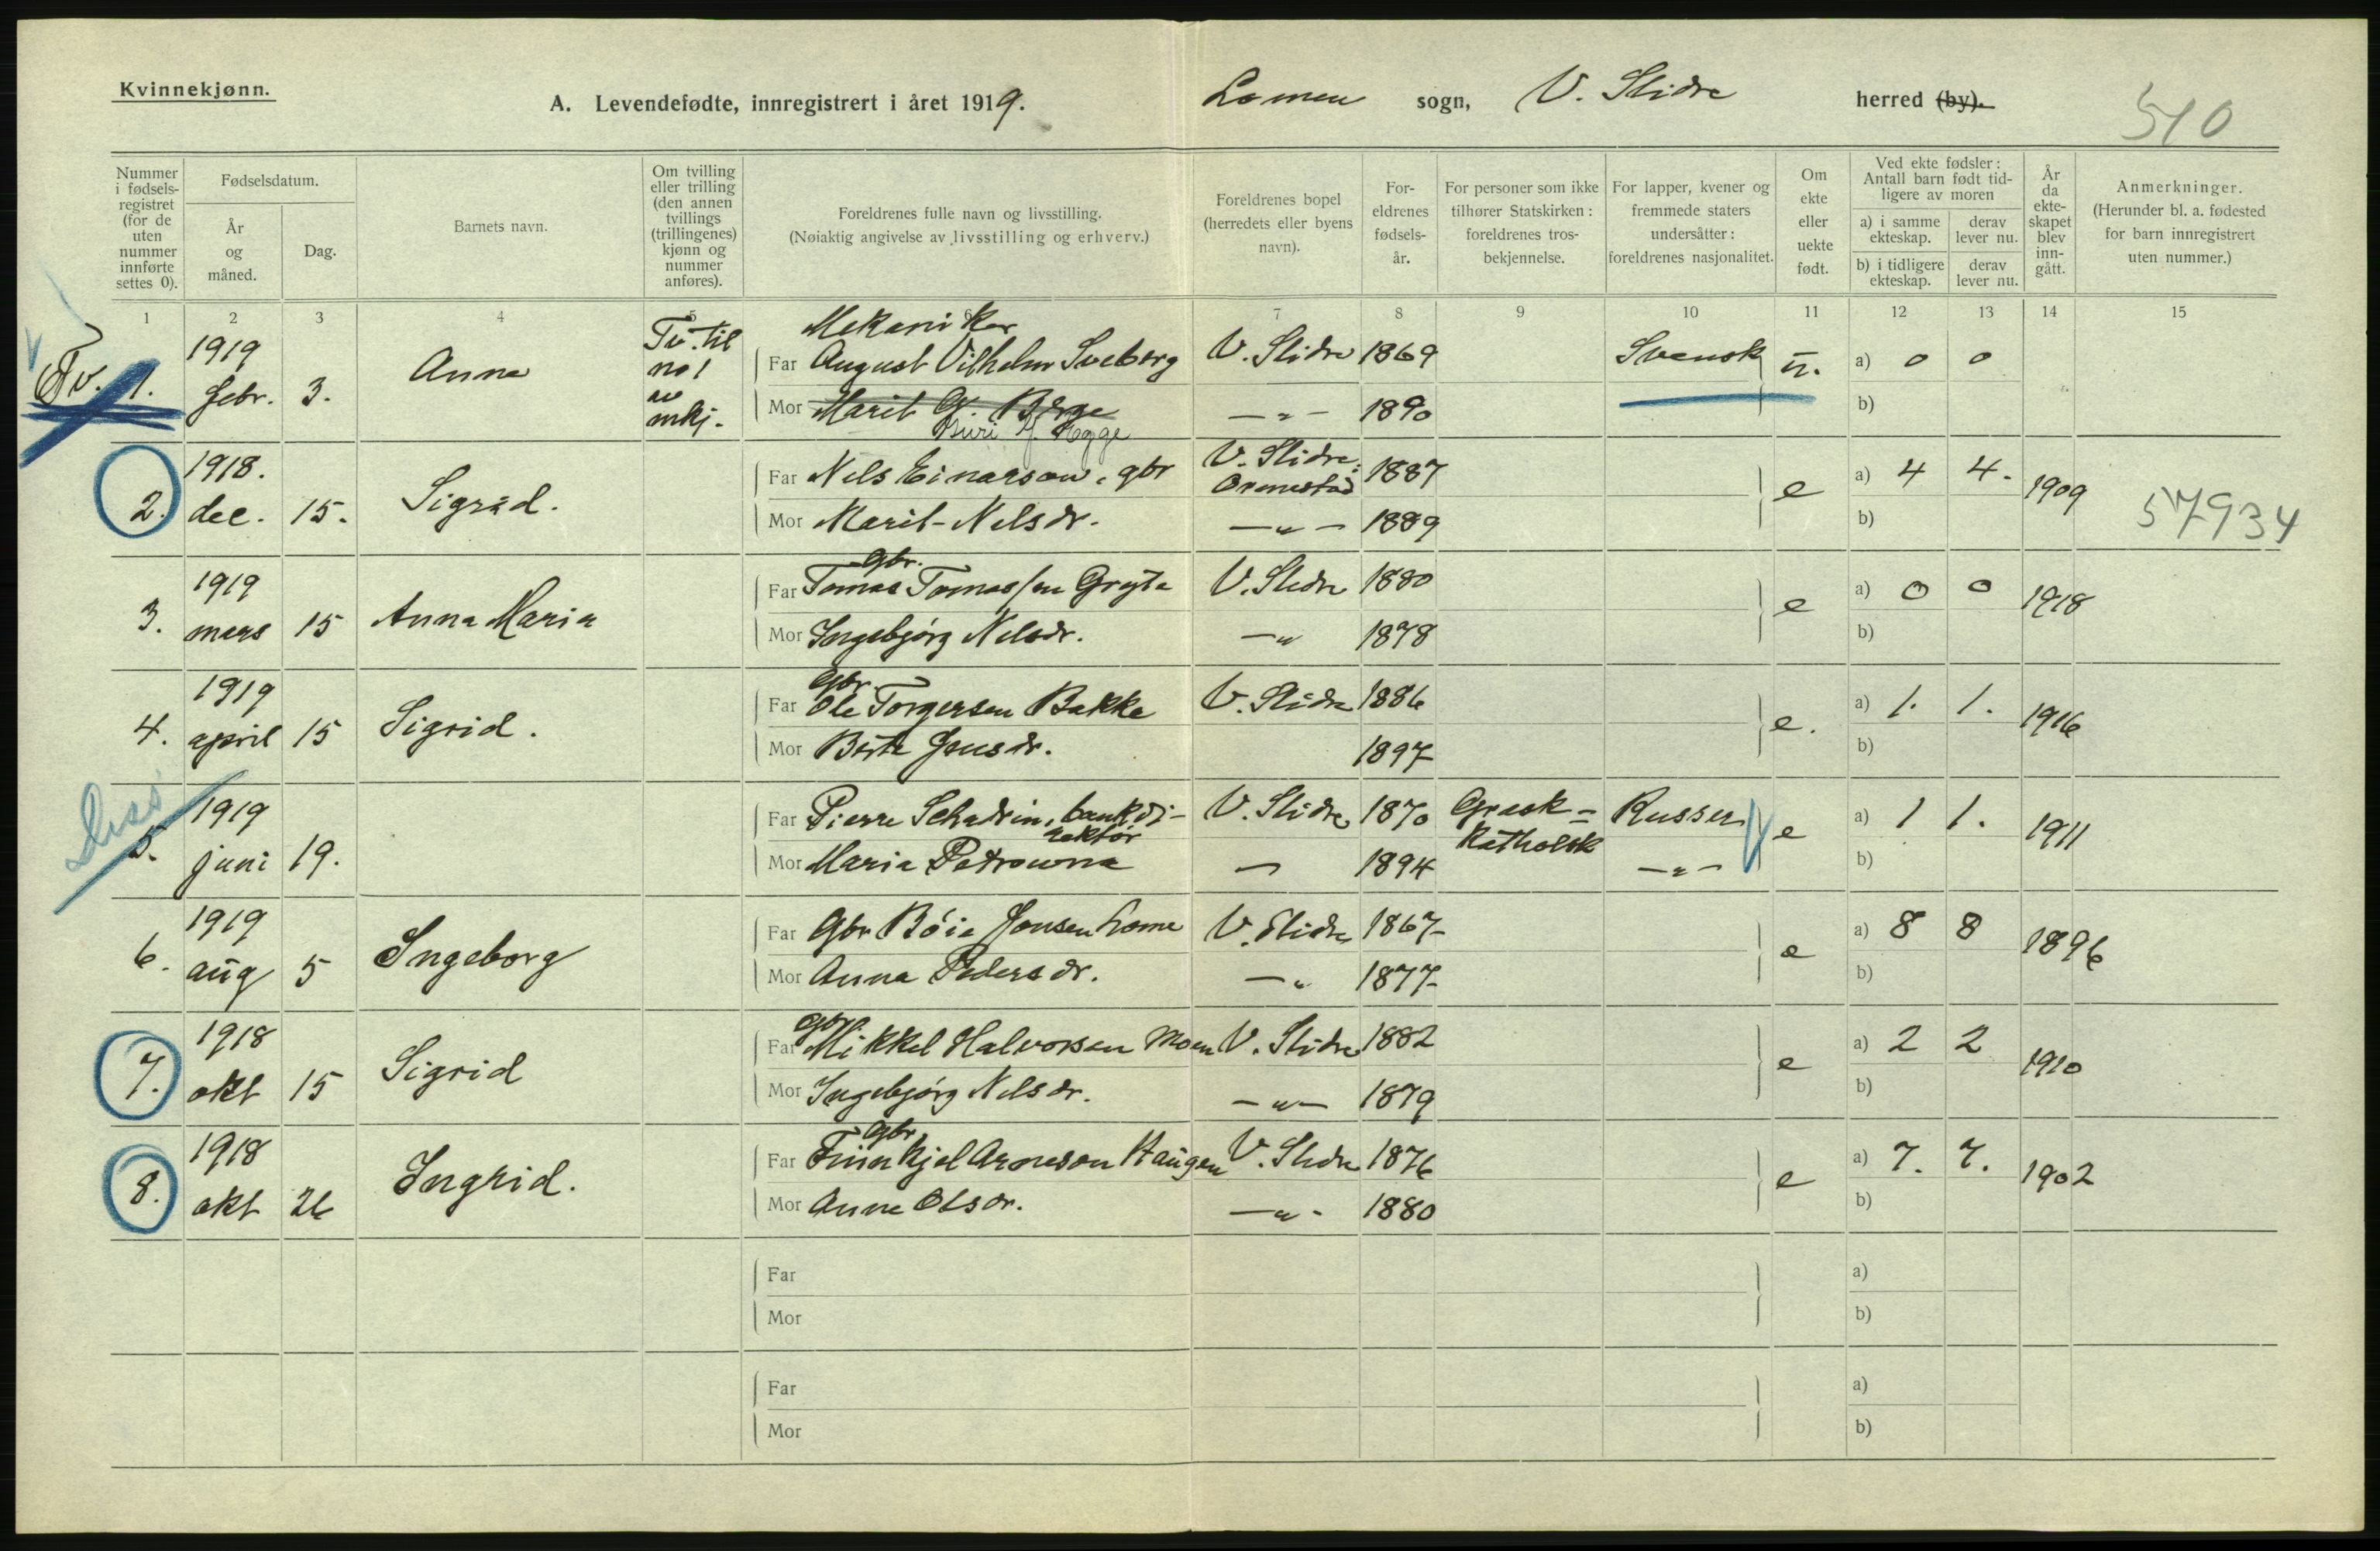 Kvinnekjønn.
A. Levendefødte, innregistrert i året 1919.
Lomen sogn, V. Slidre herred (by).
510
Nummer i fødsels-registret (for de uten nummer innførte settes 0).
Fødselsdatum.
År og måned.
Dag.
Barnets navn.
Om tvilling eller trilling (den annen tvillings (trillingenes) kjønn og nummer anføres).
Foreldrenes fulle navn og livsstilling.
(Nøiaktig angivelse av livsstilling og erhverv.)
Foreldrenes bopel (herredets eller byens navn).
For-eldrenes fødsels-år.
For personer som ikke tilhører Statskirken: foreldrenes tros-bekjennelse.
For lapper, kvener og fremmede staters undersåtter: foreldrenes nasjonalitet.
Om ekte eller uekte født.
Ved ekte fødsler: Antall barn født tid-ligere av moren
a) i samme ekteskap.
derav lever nu.
b) i tidligere ekteskap.
derav lever nu.
År da ekte-skapet blev inn-gått.
Anmerkninger.
(Herunder bl. a. fødested for barn innregistrert uten nummer.)
1 2 3 4 5 6 7 8 9 10 11 12 13 14 15
Tv. 1. 1919 febr. 3. Anna Tv. til no 1 av mkj.
Mekaniker
Far August Vilhelm Sveberg V. Slidre 1869 Svensk u. a) 0 0
Mor Marit G. Berge — " — 1890 b)
Guri A. Hegge
2. 1918. dec. 15. Sigrid.
Far Nils Einarson, gbr V. Slidre: 1887 e a) 4 4. 1909
Mor Marit Nilsdr. — " — 1889 b)
57934
3. 1919 mars 15 Anna Maria
gbr.
Far Tomas Tomassen Gryta V. Slidre 1880 e a) 0 0 1918
Mor Ingebjørg Nilsdr. — " 1878 b)
4. 1919 april 15 Sigrid.
Gbr.
Far Ole Torgersen Bakke V. Slidre 1886 e. a) 1. 1. 1916
Mor Berte Jonsdr. 1897 b)
Diss
5. 1919 juni 19.
Far Pierre Schadrin, bankdi-rektør V. Slidre 1870 Græsk-Katholsk Russer e a) 1 1. 1911
Mor Maria Petrowna — 1894 — " — b)
6. 1919 aug 5 Ingeborg
Far Gbr Bóie Jonsen Lome V. Slidre 1867 e a) 8 8 1896
Mor Anna Pedersdr. — " 1877 b)
7. 1918 okt 15 Sigrid
Gbr
Far Mikkel Halvorsen Moen V. Slidre 1882 e a) 2 2 1910
Mor Ingebjørg Nilsdr. — " — 1879 b)
8. 1918 okt 26 Ingrid.
Gbr.
Far Finnkjel Arneson Haugen V. Slidre 1876 e a) 7. 7. 1902
Mor Anne Olsdr. — " - 1880 b)
Far a)
Mor b)
Far a)
Mor b)